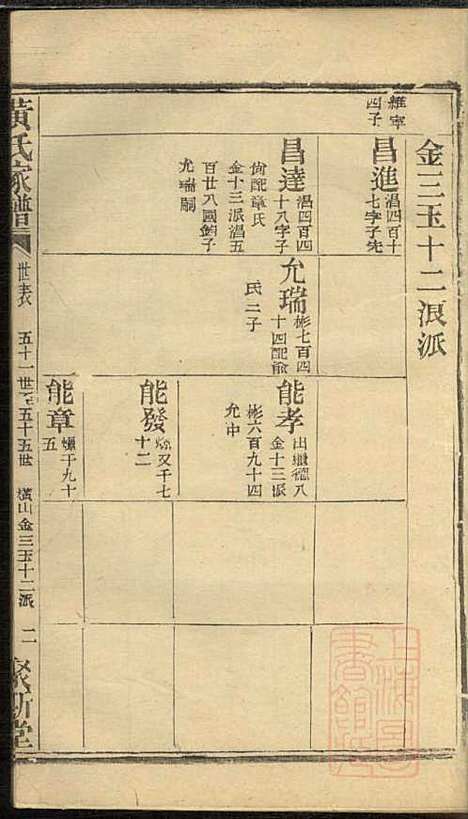 金三玉十二派派
維寧
四子
昌進
淐四百十
七字子先
昌達
淐四百四
十八字子
尙配章氏
金十三派淐五
百廿八國鈞子
允瑞嗣
允瑞
彬七百四
十四配俞
氏二子
能孝
出繼德八
金十三派
彬六百九十四
允中
能發
又千七
十二
能章
千九十
五
黃氏家譜
世表
五十一世至五十五世
橫山金三玉十二派
二
聚斯堂
上海圖
書館藏